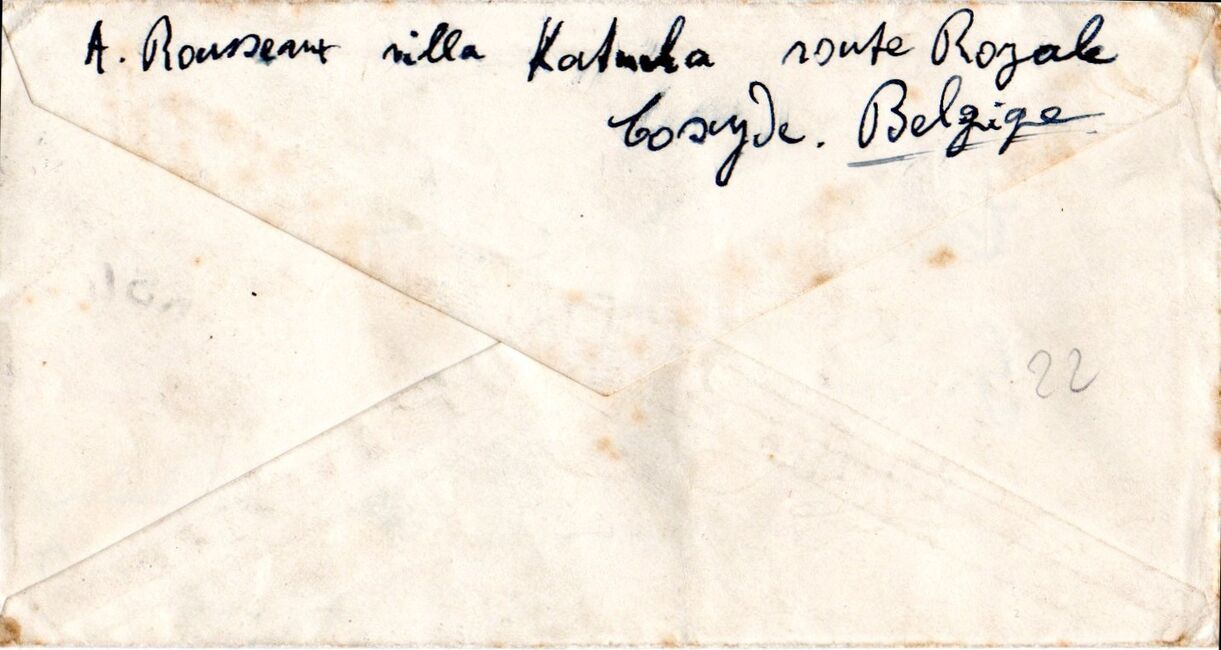 A. Rousseaux villa Katucha route Royale
Coxyde. Belgiqe
22